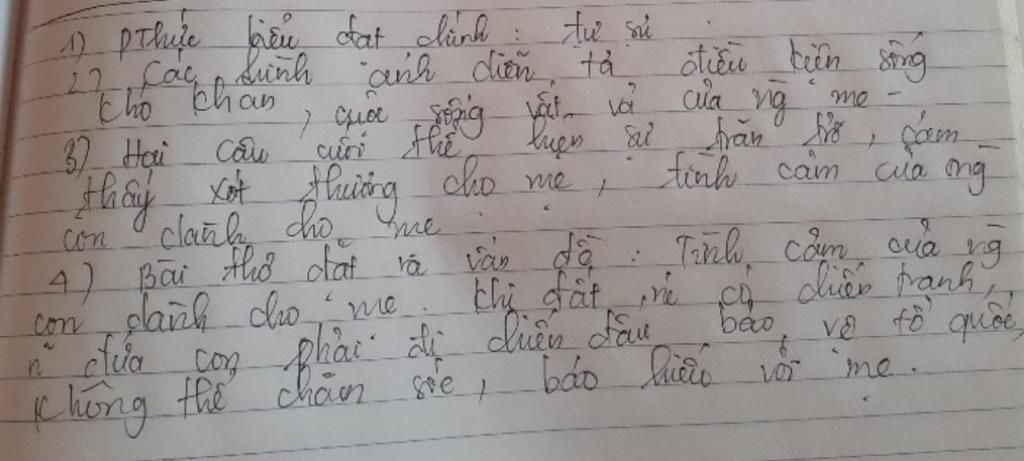 1) PThức biểu đạt chính: tự sự
2) Các hình ảnh diễn tả điều kiện sống
khó khăn, cuộc sống vất vả của ng mẹ -
3) Hai câu cuối thể hiện sự trăn trở, cảm
thấy xót thương cho mẹ, tình cảm của ng
con dành cho mẹ
4) Bài thơ đặt ra vấn đề: Tình cảm của ng
con dành cho mẹ. Khi đất nc có chiến tranh,
n~ đứa con phải đi chiến đấu bảo vệ tổ quốc,
không thể chăm sóc, báo hiếu với mẹ.